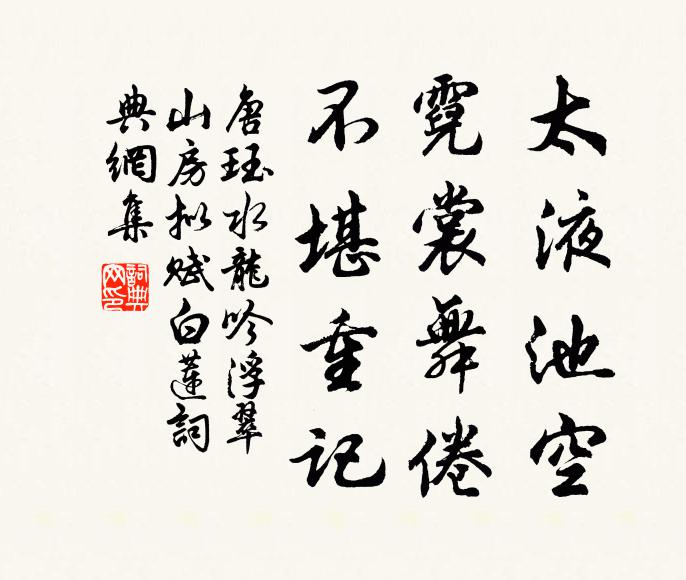 太液池空
霓裳舞倦
不堪重记
唐珏水龍吟浮翠
山房拟赋白蓮詞
典網集
詞典網印